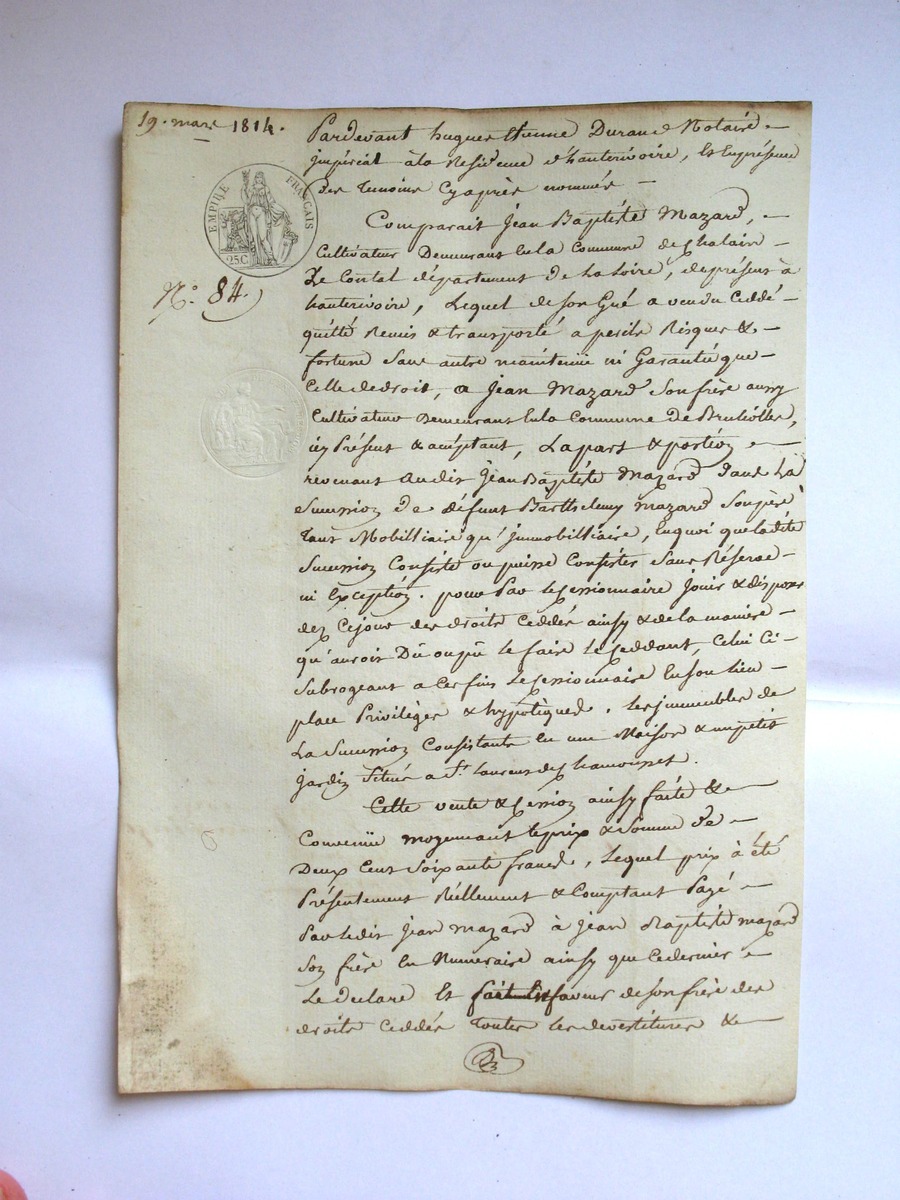 19. mars 1814.
EMPIRE FRANÇAIS
25C.
N.° 84.
Pardevant hugues Etienne Durand Notaire
impérial à la Residence d'hauterivoire, Et En présence
des temoins Cy après nommés
Comparait Jean Baptiste Mazard,
Cultivateur Demeurant En la Commune de Chalain
Le Contal département de la Loire, de présent à
hauterivoire, Lequel de son Gré a vendu Ceddé
quitté Remis & transporté a perils Risques &
fortune Sans autre maintenüe ni Garantie que
Celle de droit, a Jean Mazard Son frère aussy
Cultivateur Demeurant En la Commune de Brulliolles,
icy Présent & acceptant, La part & portion
revenant audit Jean Baptiste Mazard dans La
Succession de défunt Barthelemy Mazard Son père
tant Mobilliaire qu'Immobilliaire, En quoi que la dite
Succession Consiste ou puisse Consister Sans Réserve
ni Exception. pour Par le Cessionnaire Jouir & disposer
dez Ce jour des droits Ceddés ainsy & de la manière
qu'auroit Dû ou pu le faire le Ceddant, Celui Ci
Subrogeant a Ces fins Le Cessionnaire En son lieu
place Privilèges & hypotèques. les immeubles de
La Succession Consistants En une Maison & un petit
Jardin Situés a St. Laurent de Chamousset.
Cette vente & Cession ainsy faite &
Convenüe moyennant le prix & Somme de
Deux Cent Soixante francs, Lequel prix à été
Présentement Réellement & Comptant Payé
Par ledit Jean Mazard à Jean Baptiste Mazard
Son frère En Numeraire ainsy que Ce dernier
Le Déclare Et fait En faveur de son frère des
droits Ceddés toutes les devestitures &